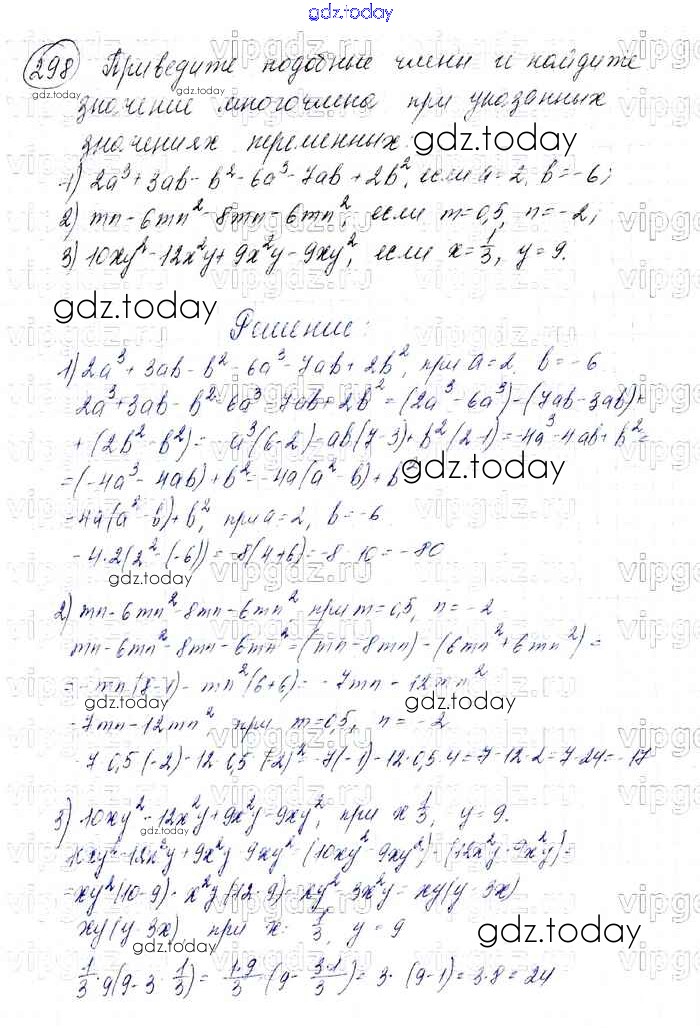 gdz.today
298 Приведите подобные члены и найдите
значение многочлена при указанных
значениях переменных:
1) 2a³+3ab-b²-6a³-7ab+2b², если a=2, b=-6;
2) mn-6mn²-8mn-6mn², если m=0,5, n=-2;
3) 10xy²-12x²y+9x²y-9xy², если x=1/3, y=9.
Решение:
1) 2a³+3ab-b²-6a³-7ab+2b², при a=2, b=-6
2a³+3ab-b²-6a³-7ab+2b²=(2a³-6a³)-(7ab-3ab)+
+(2b²-b²)=-a³(6-2)=ab(7-3)+b²(2-1)=-4a³-4ab+b²=
=(-4a³-4ab)+b²=-4a(a²-b)+b²
=4a(a²-b)+b², при a=2, b=-6
-4·2(2²-(-6))=-8(4+6)=-8·10=-80
2) mn-6mn²-8mn-6mn², при m=0,5, n=-2
mn-6mn²-8mn-6mn²=(mn-8mn)-(6mn²+6mn²)=
=-mn(8-1)-mn²(6+6)=-7mn-12mn²
-7mn-12mn², при m=0,5, n=-2
-7·0,5·(-2)-12·0,5·(-2)²=-7(-1)-12·0,5·4=7-12·2=7-24=-17
3) 10xy²-12x²y+9x²y-9xy², при x 1/3, y=9.
10xy²-12x²y+9x²y-9xy²=(10xy²-9xy²)-(12x²y-9x²y)=
=xy²(10-9)-x²y(12-9)=xy²-3x²y=xy(y-3x)
xy(y-3x), при x=1/3, y=9
1/3·9(9-3·1/3)=1·9/3·(9-3·1/3)=3·(9-1)=3·8=24